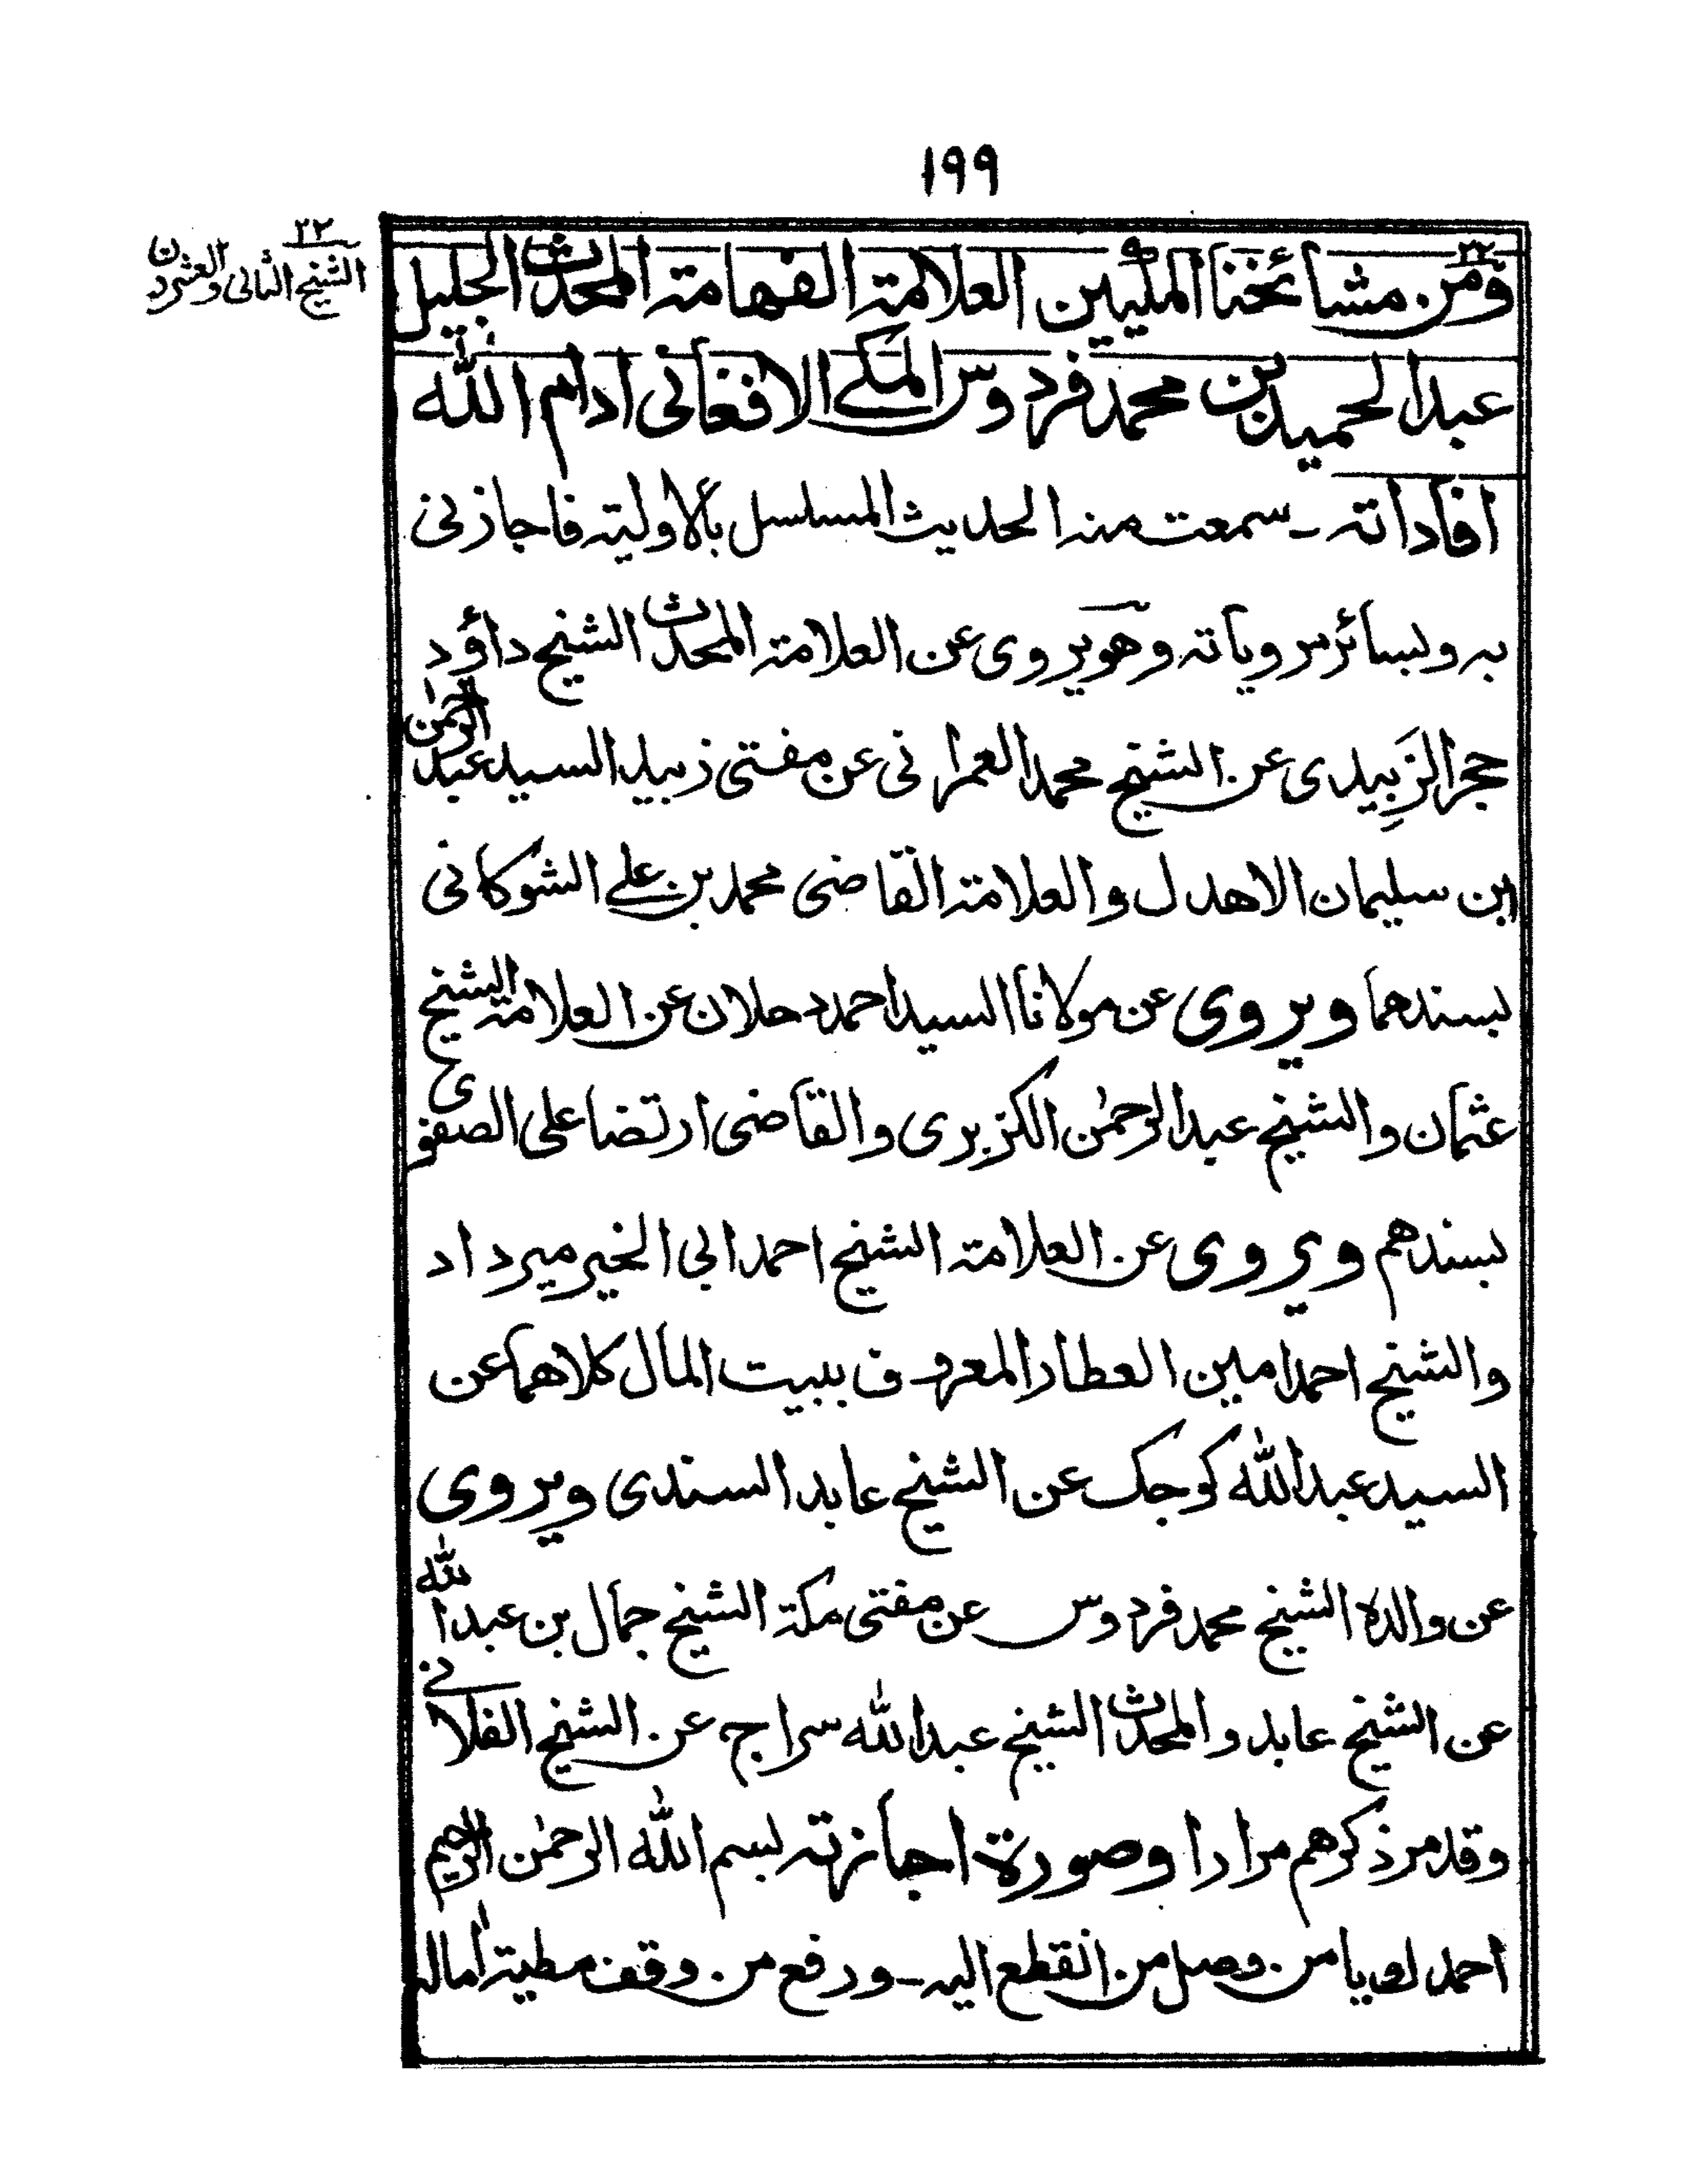 ١٩٩
٢٢
الشيخ الثاني والعشرون
ومن مشائخنا المكيين العلامة الفهامة المحدث الجليل
عبد الحميد بن محمد فردوس المكي الافغاني ادام الله
افاداته ـ سمعت منه الحديث المسلسل بالاولية فاجازني
به وبسائر مروياته وهو يروي عن العلامة المحدث الشيخ داؤد
حجر الزَبِيدي عن الشيخ محمد العمراني عن مفتي زبيد السيد عبد الرحمٰن
ابن سليمان الاهدل والعلامة القاضي محمد بن علي الشوكاني
بسندهما ويروي عن مولانا السيد احمد دحلان عن العلامة الشيخ
عثمان والشيخ عبد الرحمٰن الكزبري والقاضي ارتضا على الصفوي
بسندهم ويروي عن العلامة الشيخ احمد ابي الخير ميرداد
والشيخ احمد امين العطار المعروف ببيت المال كلاهما عن
السيد عبد الله كوجك عن الشيخ عابد السندي ويروي
عن والده الشيخ محمد فردوس عن مفتي مكة الشيخ جمال بن عبد الله
عن الشيخ عابد والمحدث الشيخ عبد الله سراج، عن الشيخ الفلاني
وقد مر ذكرهم مرارا وصورة اجازته بسم الله الرحمٰن الرحيم
احمدك يا من وصل من انقطع اليه ـ ورفع من وقف مطية اٰماله